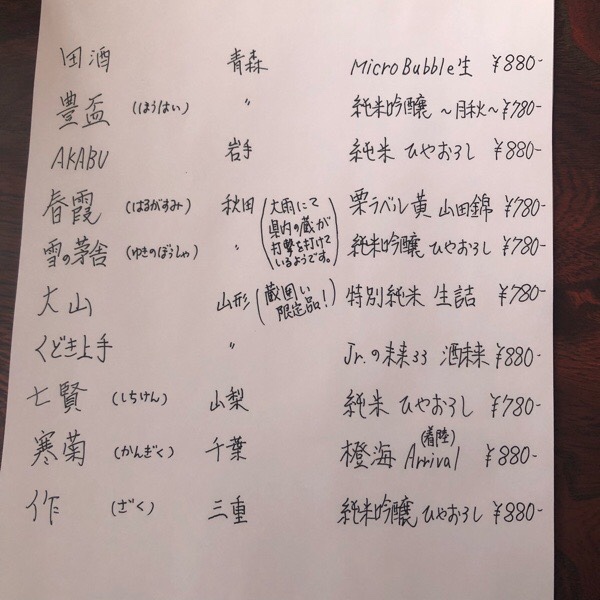 田酒 青森 Micro Bubble生 ¥880-
豊盃 (ほうはい) 〃 純米吟醸 ~月秋~ ¥780-
AKABU 岩手 純米 ひやおろし ¥880-
春霞 (はるがすみ) 秋田 栗ラベル 黄 山田錦 ¥780-
(大雨にて
県内の蔵が
打撃を打けて
いるようです。)
雪の茅舎 (ゆきのぼうしゃ) 〃 純米吟醸 ひやおろし ¥780-
大山 山形 (蔵囲い 特別純米 生詰 ¥780-
限定品!)
くどき上手 〃 Jr.の未来33 酒未来 ¥880-
七賢 (しちけん) 山梨 純米 ひやおろし ¥780-
(着陸)
寒菊 (かんぎく) 千葉 橙海 Arrival ¥880-
作 (ざく) 三重 純米吟醸 ひやおろし ¥880-